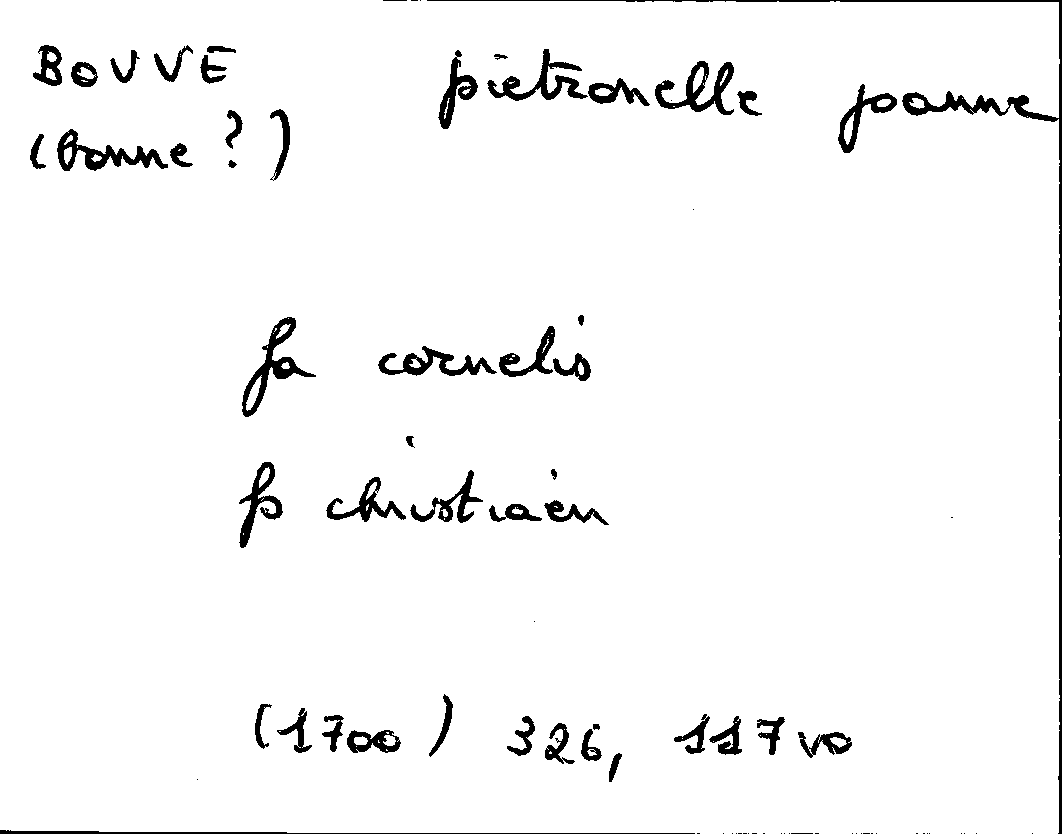 BOUVE pietronelle joanne
(bonne ?)
fa cornelis
fs christiaen
(1700) 326, 117 vo